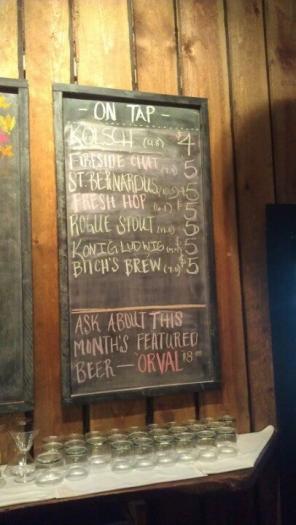 - ON TAP -
KOLSCH $4
FIRESIDE CHAT 5
ST. BERNARDUS $5
FRESH HOP $5
ROGUE STOUT 5
KONIG LUDWIG $5
BITCH'S BREW 5
ASK ABOUT THIS
MONTH'S FEATURED
BEER — ORVAL $8